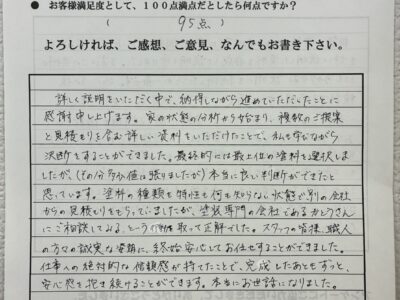 ● お客様満足度として、100点満点だとしたら何点ですか?
( 95点 )
よろしければ、ご感想、ご意見、なんでもお書き下さい。
詳しく説明をいただく中で、納得しながら進めていただいたことに
感謝申し上げます。家の状態の分析から始まり、複数のご提案
と見積もりを含む詳しい資料をいただけたことで、私も学びながら
決断をすることができました。最終的には最上位の塗料を選択しま
したが、(その分多少値は張りましたが)本当に良い判断ができたと
思っています。塗料の種類も特性も何も知らない状態で別の会社
からの見積もりをもらっていましたが、塗装専門の会社であるかとうさん
にご相談してみる、という行動を取って正解でした。スタッフの皆様、職人
の方々の誠実な姿勢に、終始安心してお任せすることができました。
仕事への絶対的な信頼感が持てたことで、完成したあともずっと、
安心感を抱き続けることができます。本当にお世話になりました。